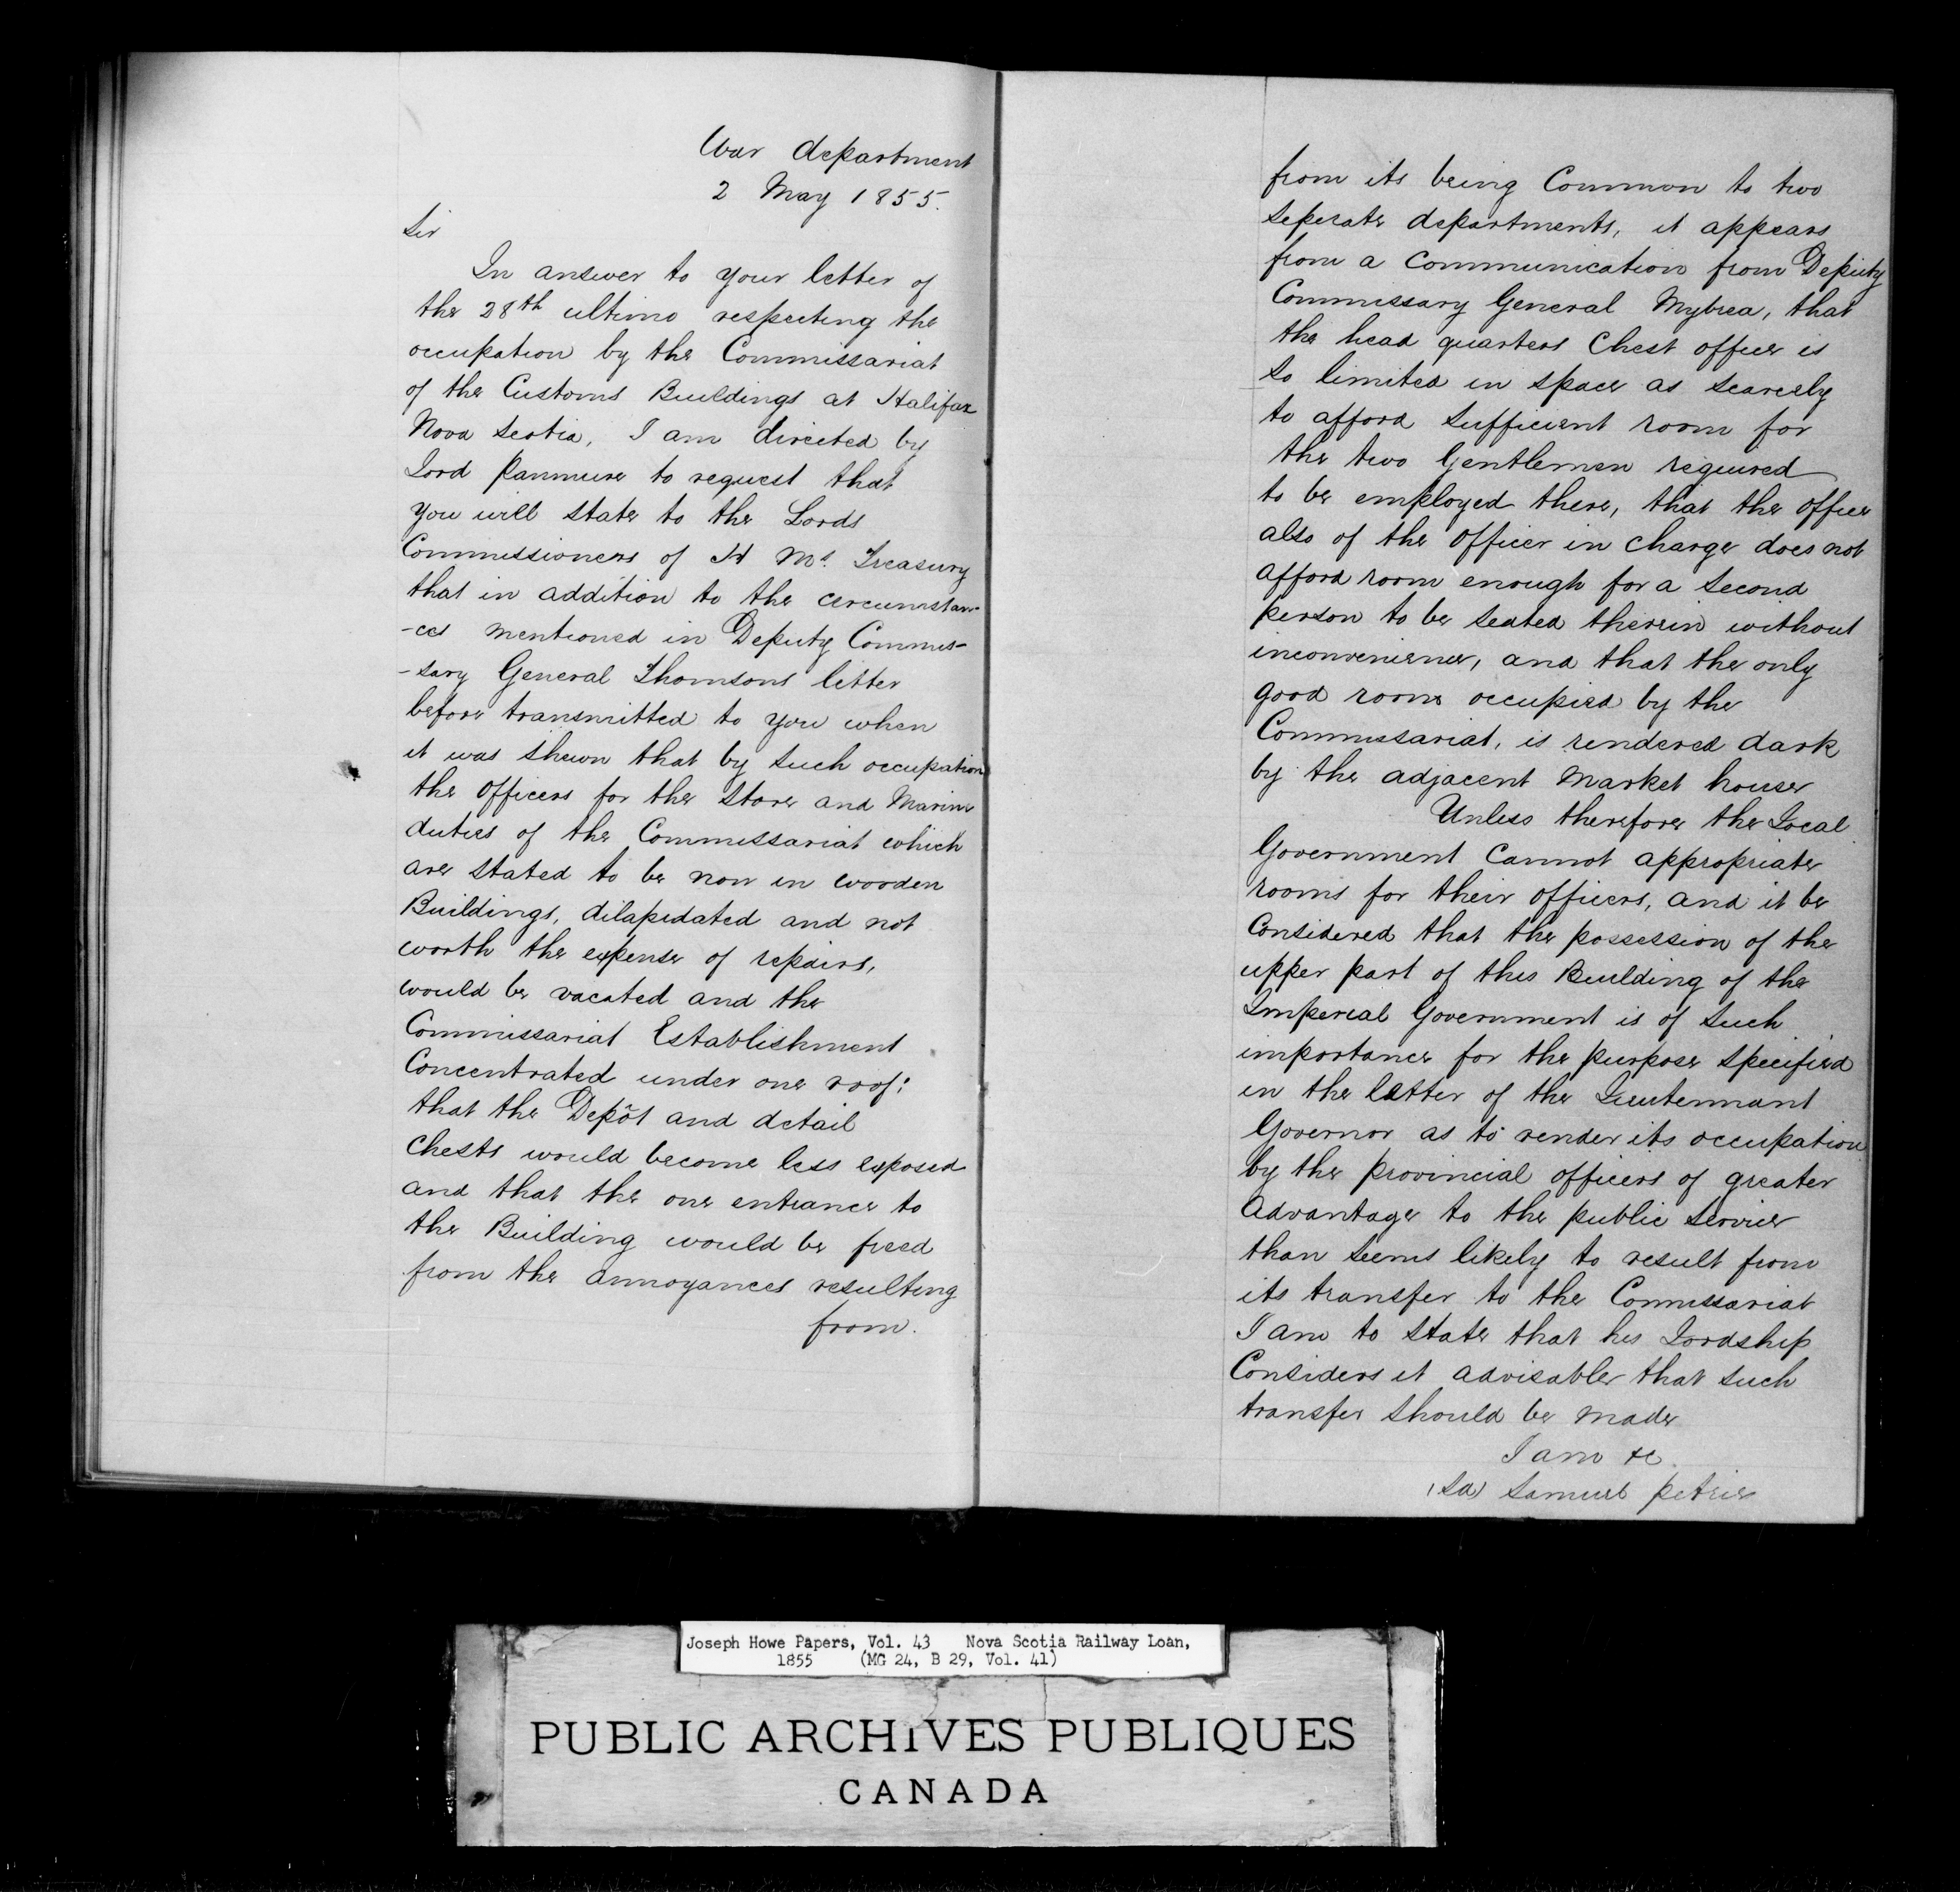 War department
2 May 1855.
Sir
In answer to your letter of
the 28th ultimo respecting the
occupation by the Commissariat
of the Customs Buildings at Halifax
Nova Scotia, I am directed by
Lord Panmure to request that
you will state to the Lords
Commissioners of H Ms. Treasury
that in addition to the circumstan-
-ces mentioned in Deputy Commis-
-sary General Thomsons letter
before transmitted to you when
it was shewn that by such occupation
the officers for the Store and Marine
duties of the Commissariat which
are stated to be now in wooden
Buildings, dilapidated and not
worth the expense of repairs,
would be vacated and the
Commissariat Establishment
Concentrated under one roof:
that the Depôt and detail
Chests would become less exposed
and that the one entrance to
the Building would be freed
from the annoyances resulting
from.
from its being Common to two
seperate departments, it appears
from a communication from Deputy
Commissary General Mybrea, that
the head quarters Chest office is
so limited in space as scarcely
to afford sufficient room for
the two Gentlemen required
to be employed there, that the office
also of the officer in charge does not
afford room enough for a second
person to be seated therein without
inconvenience, and that the only
good room occupied by the
Commissariat, is rendered dark
by the adjacent Market house
Unless therefore the Local
Government Cannot appropriate
rooms for their officers, and it be
Considered that the possession of the
upper part of this Building of the
Imperial Government is of such
importance for the purpose specified
in the letter of the Lieutennant
Governor as to render its occupation
by the provincial officers of greater
advantage to the public service
than seems likely to result from
its transfer to the Commissariat
I am to state that his Lordship
Considers it advisable that such
transfer should be made
I am &c.
(Sd) Samuel Petrie
Joseph Howe Papers, Vol. 43 Nova Scotia Railway Loan,
1855 (MG 24, B 29, Vol. 41)
PUBLIC ARCHIVES PUBLIQUES
CANADA